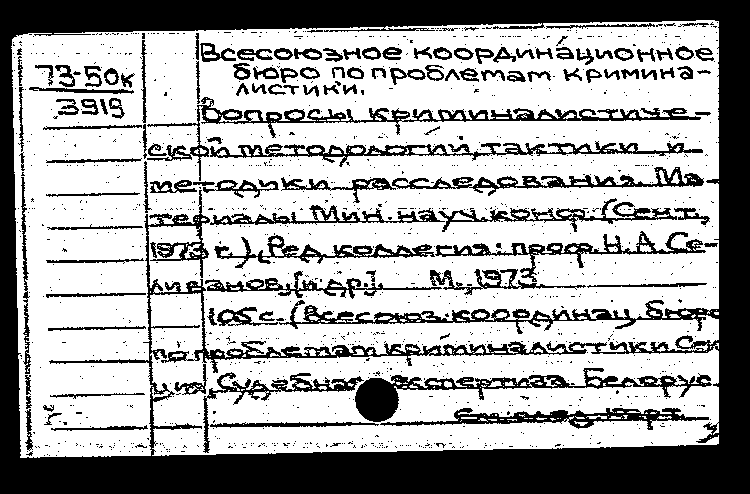 73-50к
3919
Всесоюзное координационное
бюро по проблемам кримина-
листики.
Вопросы криминалистиче-
ской методологии, тактики и
методики расследования. Ма-
териалы Мин. науч. конф. (Сент.,
1973 г.). (Ред. коллегия: проф. Н. А. Се-
ливанов, [и др.]. М., 1973
105 с. (Всесоюз. координац. бюро
по проблемам криминалистики. Сек
ция, Судебная экспертиза Белорус.
см. след. карт.